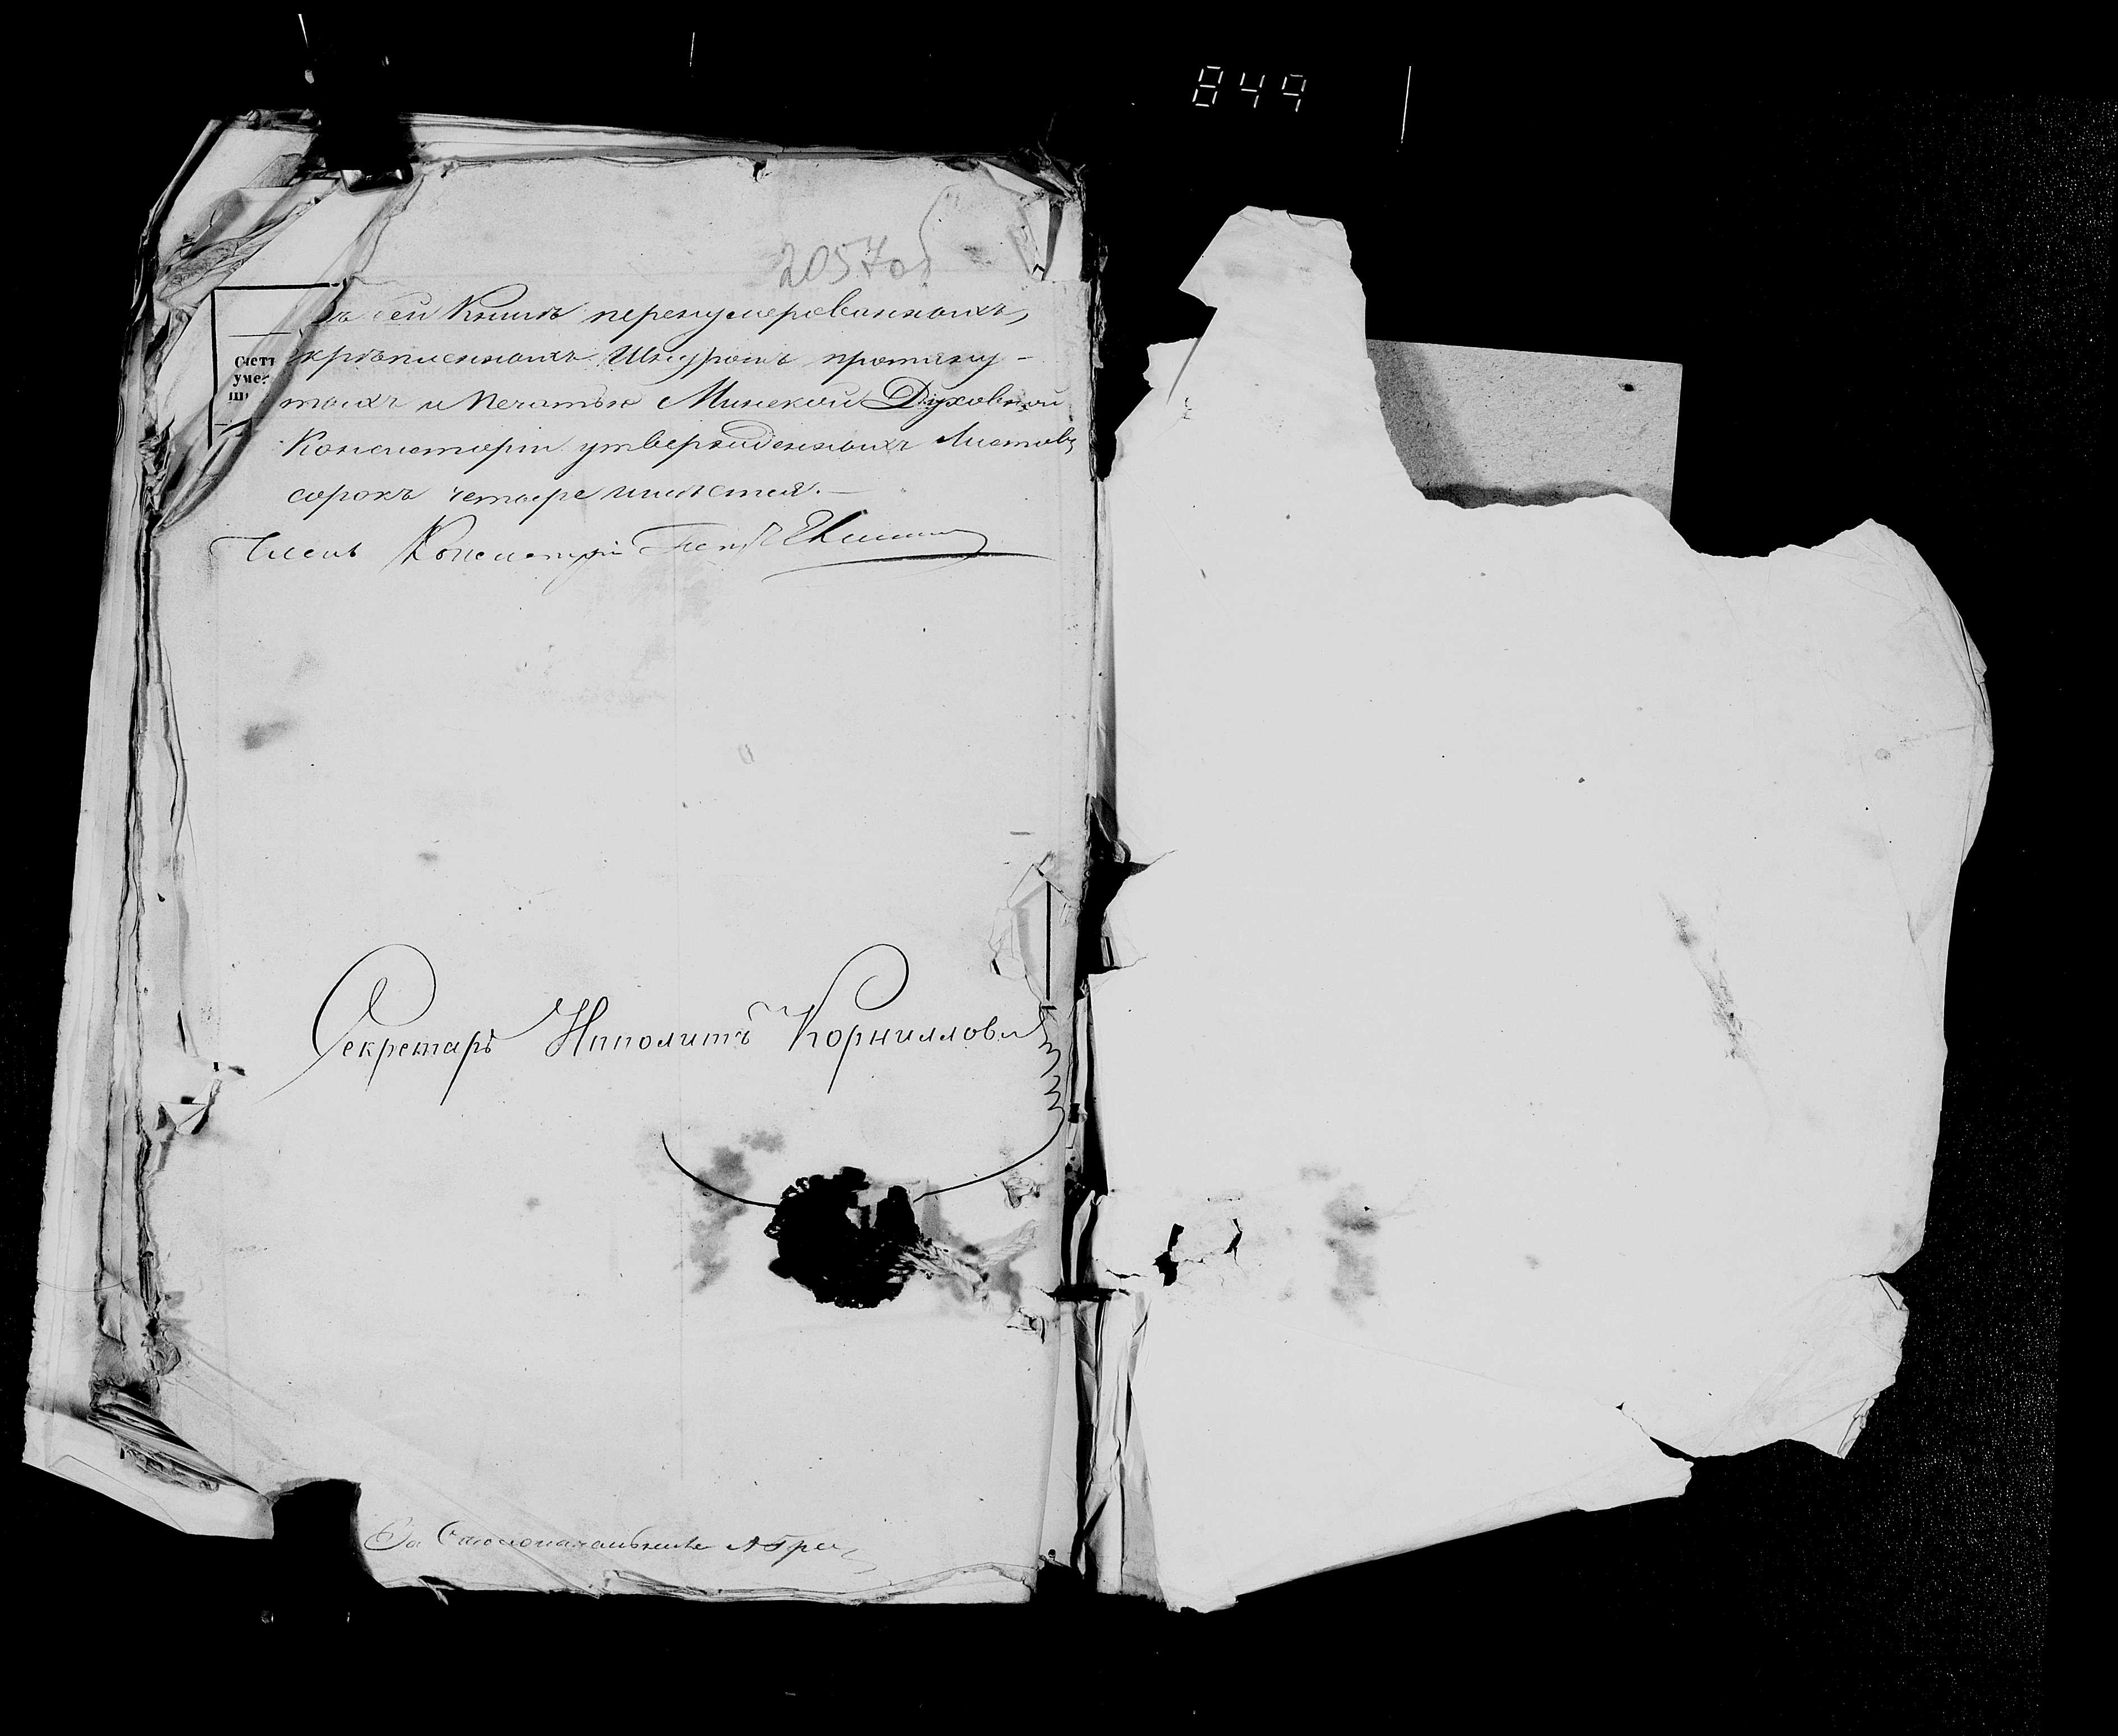 849
2057об
ъ сей Книгѣ перенумерованныхъ,
скрѣпленныхъ Шнуромъ протяну-
тыхъ и печатью Минской Духовной
Консисторіи утвержденныхъ Листовъ
сорокъ четыре имѣется.—
Членъ Консисторіи
Счетъ
умер
ши
Секретарь Ипполитъ Корниллов
За Столоначальника